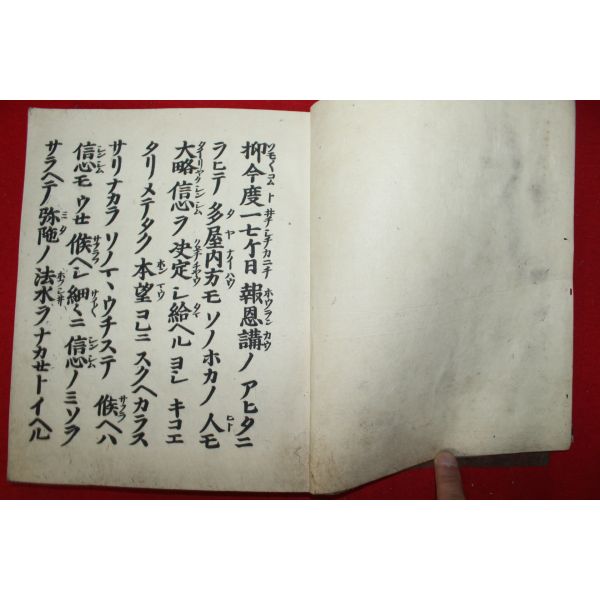 抑今度一七ケ日報恩講ノアヒタニ
ヲヒテ多屋内方モソノホカノ人モ
大略信ヲ决定シ給ヘルヨシキコエ
タリメテタク本望コレニスクヘカラス
サリナカラソノマヽウチステ候ヘハ
信心モウせ候ヘシ細〻ニ信心ノミソヲ
サラヘテ弥陁ノ法水ヲナカせトイヘル